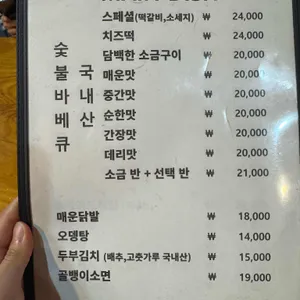 스페셜(떡갈비,소세지) ₩ 24,000
치즈떡 ₩ 24,000
담백한 소금구이 ₩ 20,000
매운맛 ₩ 20,000
중간맛 ₩ 20,000
순한맛 ₩ 20,000
간장맛 ₩ 20,000
데리맛 ₩ 20,000
소금 반 + 선택 반 ₩ 21,000
숯불바베큐
국내산
매운닭발 ₩ 18,000
오뎅탕 ₩ 14,000
두부김치 (배추,고춧가루 국내산) ₩ 15,000
골뱅이소면 ₩ 19,000